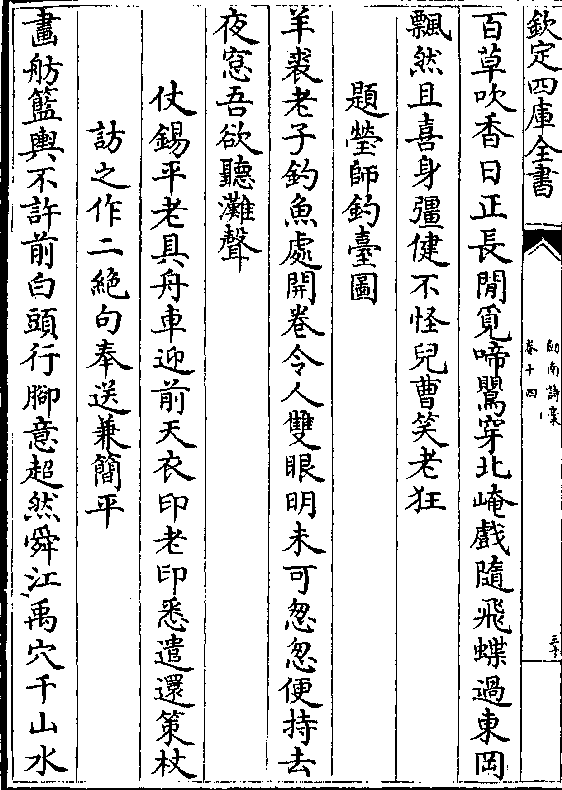 欽定四庫全書
劍南詩稾
卷十四
三十
百草吹香日正長閒覓啼鸎穿北崦戲隨飛蝶過東岡
飄然且喜身彊健不怪兒曹笑老狂
題瑩師釣臺圖
羊裘老子釣魚處開卷令人雙眼明未可怱怱便持去
夜窓吾欲聽灘聲
仗錫平老具舟車迎前天衣印老印悉遣還策杖
訪之作二絶句奉送兼簡平
畵舫籃輿不許前白頭行腳意超然舜江禹穴千山水